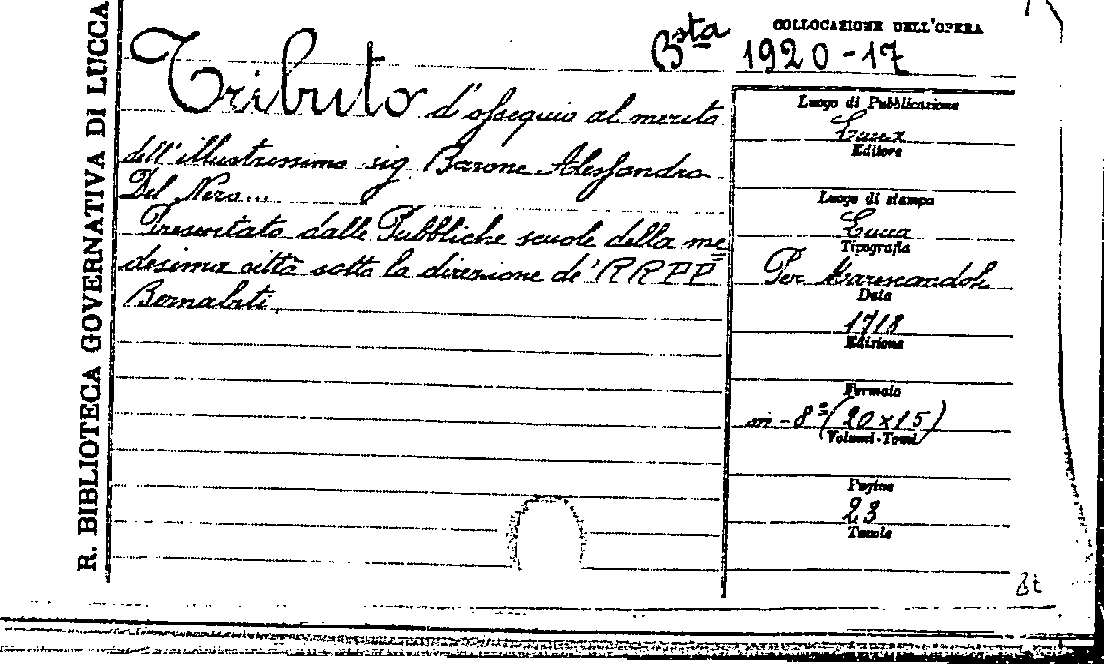 R. BIBLIOTECA GOVERNATIVA DI LUCCA
COLLOCAZIONE DELL'OPERA
Bsta 1920-17
Tributo d'ossequio al merito
dell'illustrissimo sig Barone Alessandro
Del Nero...
Presentato dalle Pubbliche scuole della me
desima città sotto la direzione de' RRPP
Barnabiti
Luogo di Pubblicazione
Lucca
Editore
Luogo di stampa
Lucca
Tipografia
Per Marescandoli
Data
1718
Edizione
Formato
in-8º (20x15)
Volumi-Tomi
Pagine
23
Tavole
Bt